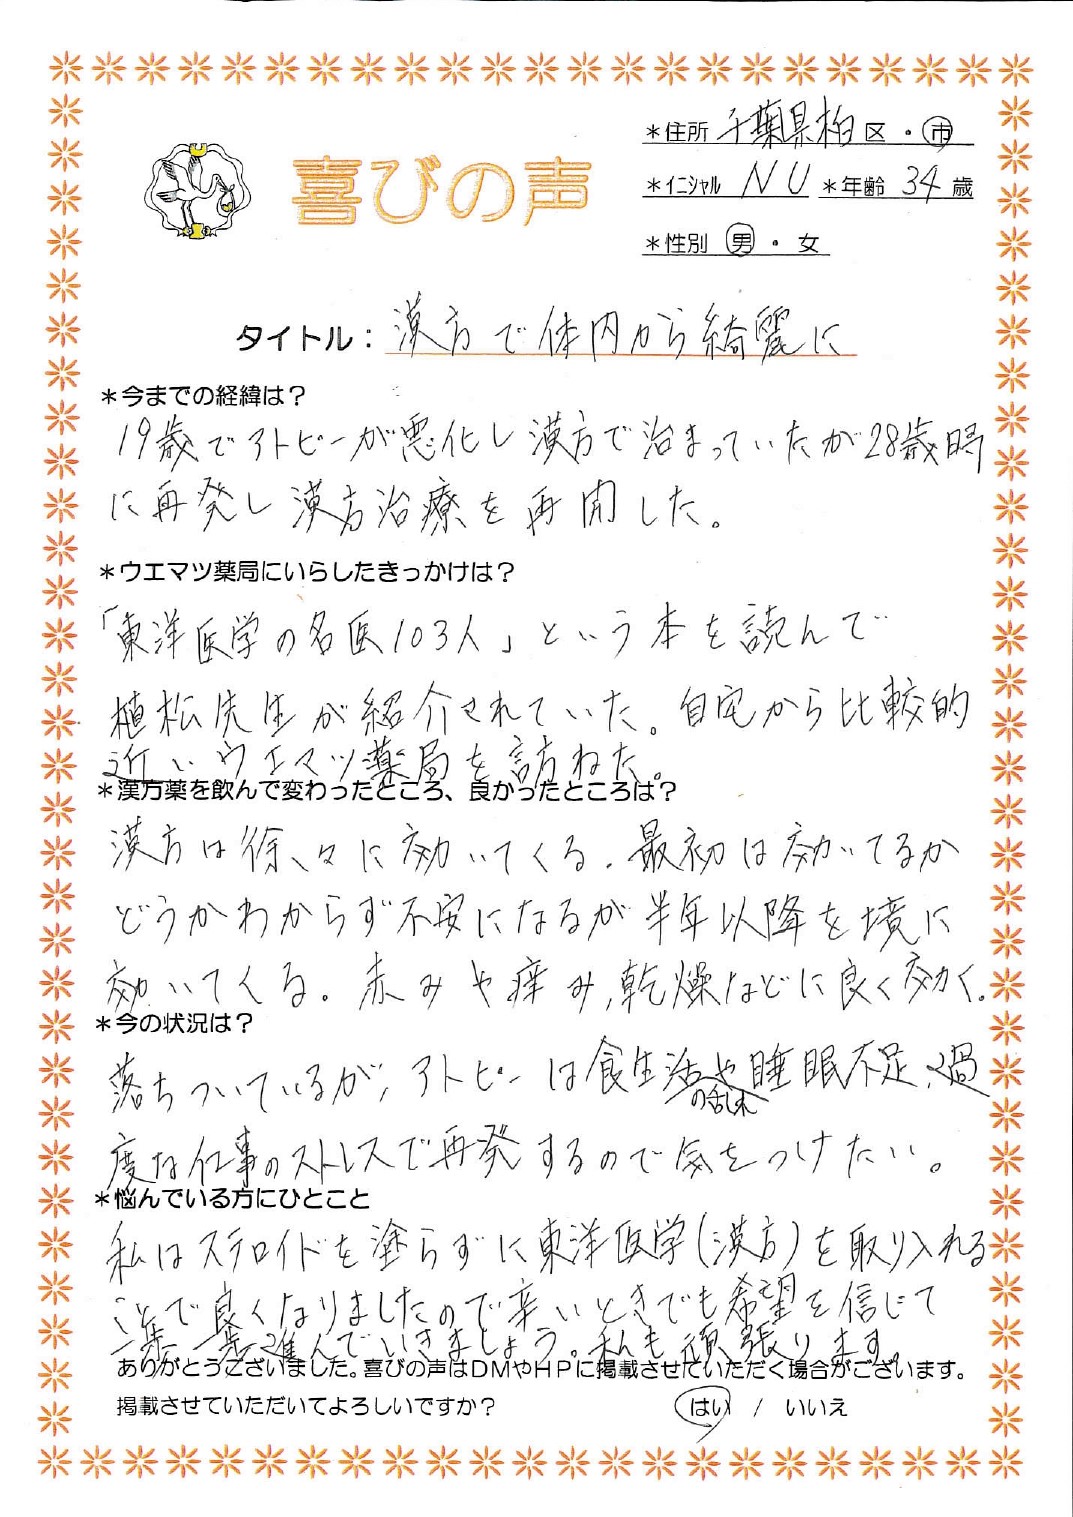 ＊住所 千葉県柏 区・市
喜びの声
＊ｲﾆｼｬﾙ NU ＊年齢 34 歳
＊性別 男・女
タイトル：漢方で体内から綺麗に
＊今までの経緯は？
19歳でアトピーが悪化し漢方で治まっていたが28歳時
に再発し漢方治療を再開した。
＊ウエマツ薬局にいらしたきっかけは？
「東洋医学の名医103人」という本を読んで
植松先生が紹介されていた。自宅から比較的
近いウエマツ薬局を訪ねた。
＊漢方薬を飲んで変わったところ、良かったところは？
漢方は徐々に効いてくる。最初は効いてるか
どうかわからず不安になるが半年以降を境に
効いてくる。赤みや痒み、乾燥などに良く効く。
＊今の状況は？
落ちついているが、アトピーは食生活の乱れや睡眠不足、過
度な仕事のストレスで再発するので気をつけたい。
＊悩んでいる方にひとこと
私はステロイドを塗らずに東洋医学(漢方)を取り入れる
ことで良くなりましたので辛いときでも希望を信じて
一歩一歩進んでいきましょう。私も頑張ります。
ありがとうございました。喜びの声はＤＭやＨＰに掲載させていただく場合がございます。
掲載させていただいてよろしいですか？ はい / いいえ